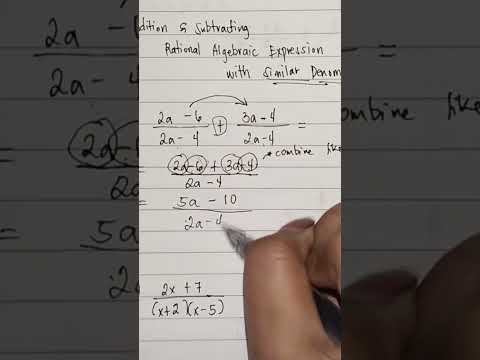 dition & Subtracting
Rational Algebraic Expression
with Similar Denom
2a - 6 / 2a - 4 + 3a - 4 / 2a - 4 =
2a - 6 + 3a - 4 / 2a - 4 combine like
= 5a - 10 / 2a - 4
2x + 7 / (x+2)(x-5)